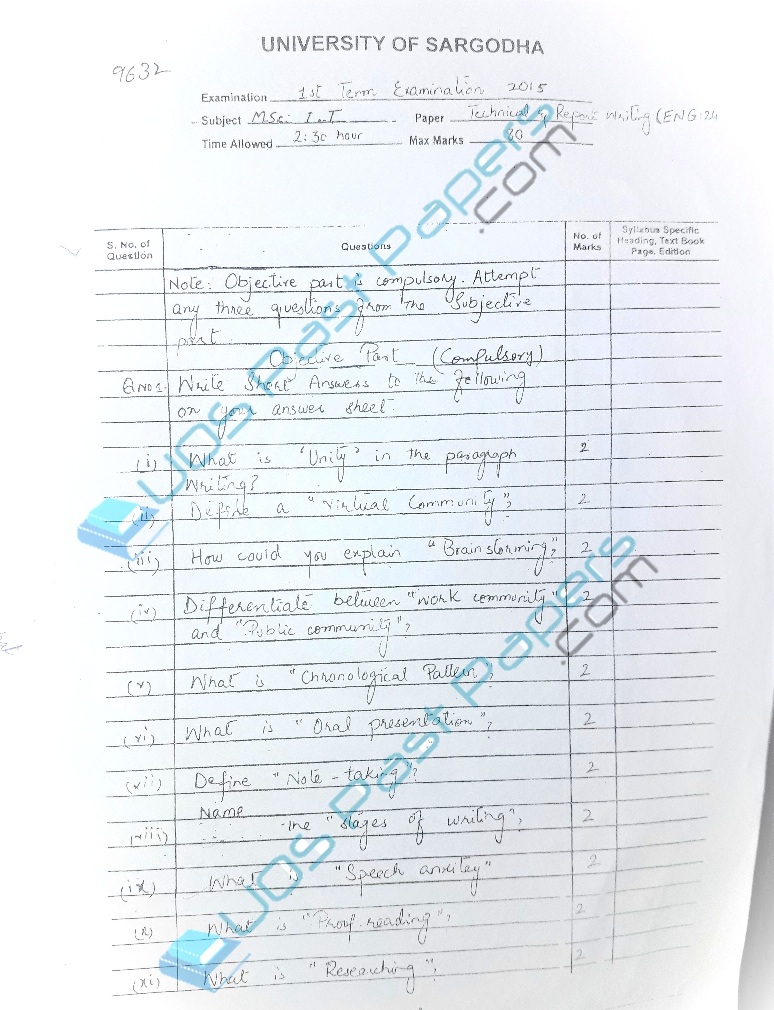 UNIVERSITY OF SARGODHA
9632
Examination 1st Term Examination 2015
Subject MSc. I.T Paper Technical & Report Writing (ENG:24
Time Allowed 2:30 hour Max Marks 80
S. No. of Question Questions No. of Marks Syllabus Specific Heading, Text Book Page. Edition
Note: Objective part is compulsory. Attempt
any three questions from the Subjective
part
Objective Part (Compulsory)
QNO1- Write Short Answers to the following
on your answer sheet.
(i) What is 'Unity' in the paragraph 2
Writing?
(ii) Define a "Virtual Community"? 2
(iii) How could you explain "Brainstorming"? 2
(iv) Differentiate between "work community" 2
and "Public community"?
(v) What is "Chronological Pattern"? 2
(vi) What is "Oral presentation"? 2
(vii) Define "Note-taking"? 2
Name
(viii) the "stages of writing"? 2
(ix) What is "Speech anxitey" 2
(x) What is "Proof reading"? 2
(xi) What is "Researching"? 2
UOS Past Papers .com
UOS Past Papers .com